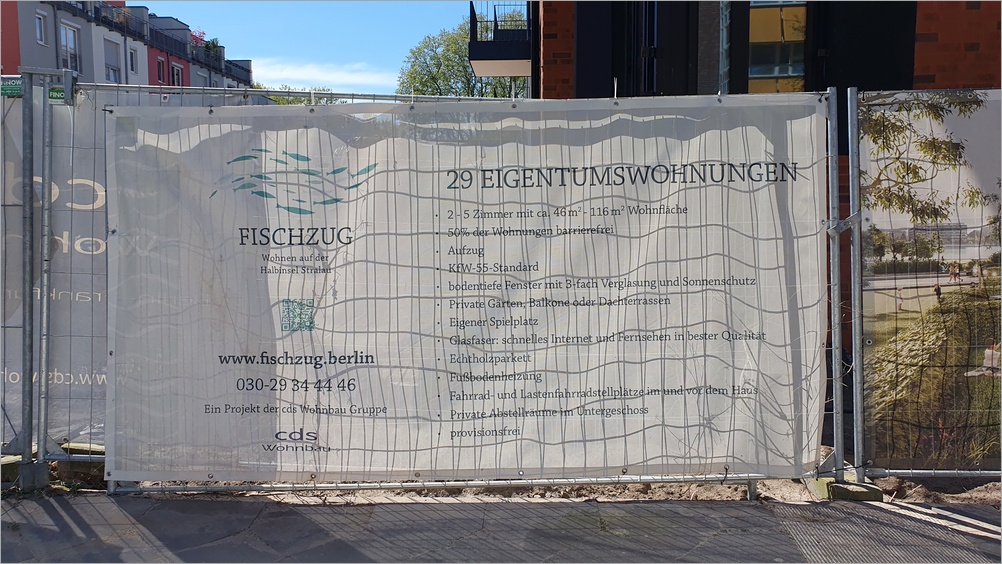 FISCHZUG
Wohnen auf der
Halbinsel Stralau
www.fischzug.berlin
030-29 34 44 46
Ein Projekt der cds Wohnbau Gruppe
cds
Wohnbau
29 EIGENTUMSWOHNUNGEN
· 2 - 5 Zimmer mit ca. 46 m² - 116 m² Wohnfläche
· 50% der Wohnungen barrierefrei
· Aufzug
· KfW-55-Standard
· bodentiefe Fenster mit 3-fach Verglasung und Sonnenschutz
· Private Gärten, Balkone oder Dachterrassen
· Eigener Spielplatz
· Glasfaser: schnelles Internet und Fernsehen in bester Qualität
· Echtholzparkett
· Fußbodenheizung
· Fahrrad- und Lastenfahrradstellplätze im und vor dem Haus
· Private Abstellräume im Untergeschoss
· provisionsfrei